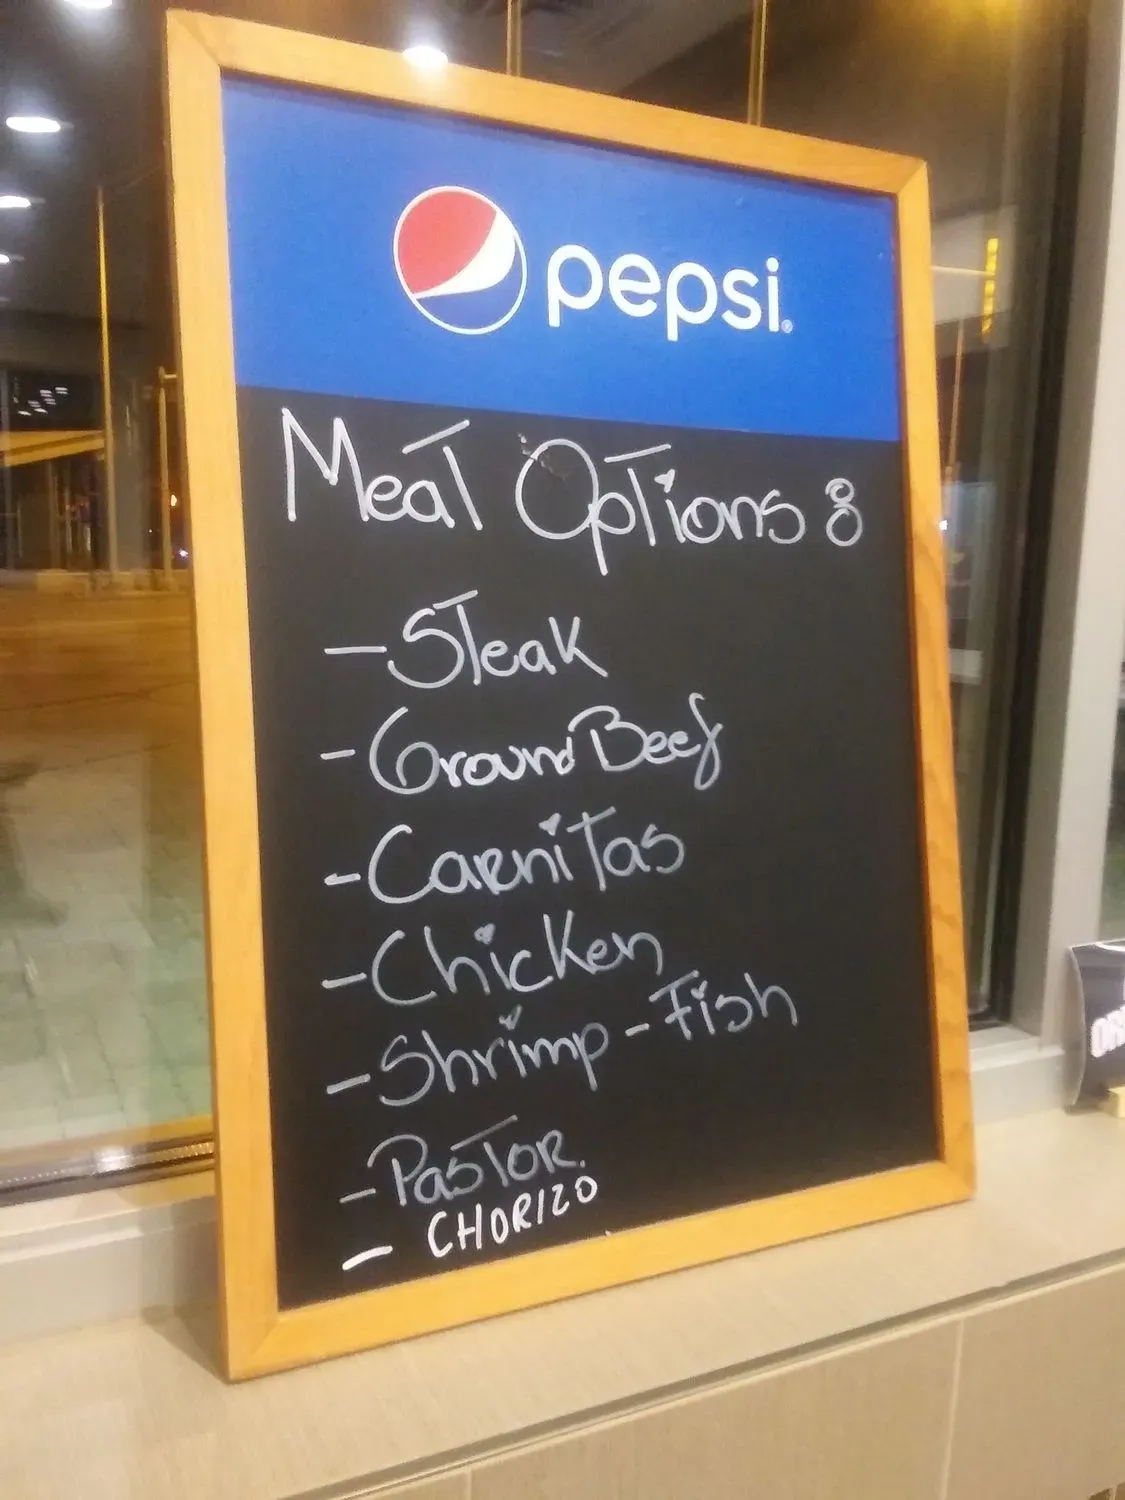 pepsi®
Meat Options :
- Steak
- Ground Beef
- Carnitas
- Chicken
- Shrimp - Fish
- Pastor.
- CHORIZO